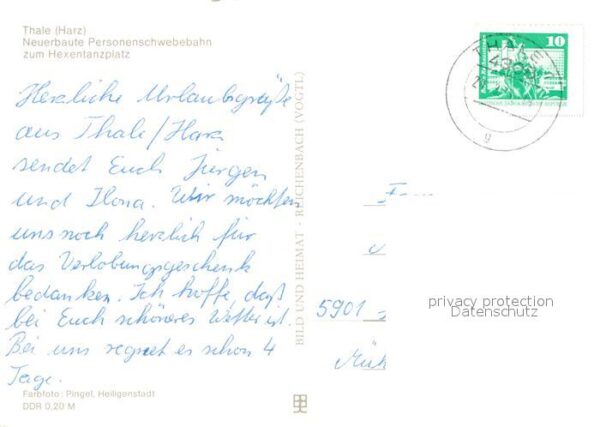 Thale (Harz)
Neuerbaute Personenschwebebahn
zum Hexentanzplatz
Herzliche Urlaubsgrüße
aus Thale/Harz
sendet Euch Jürgen
und Ilona. Wir möchten
uns noch herzlich für
das Verlobungsgeschenk
bedanken. Ich hoffe, daß
bei Euch schöneres Wetter ist.
Bei uns regnet es schon 4
Tage.
Farbfoto: Pingel, Heiligenstadt
DDR 0,20 M
BILD UND HEIMAT · REICHENBACH (VOGTL)
10
THALE
5901
privacy protection
Datenschutz